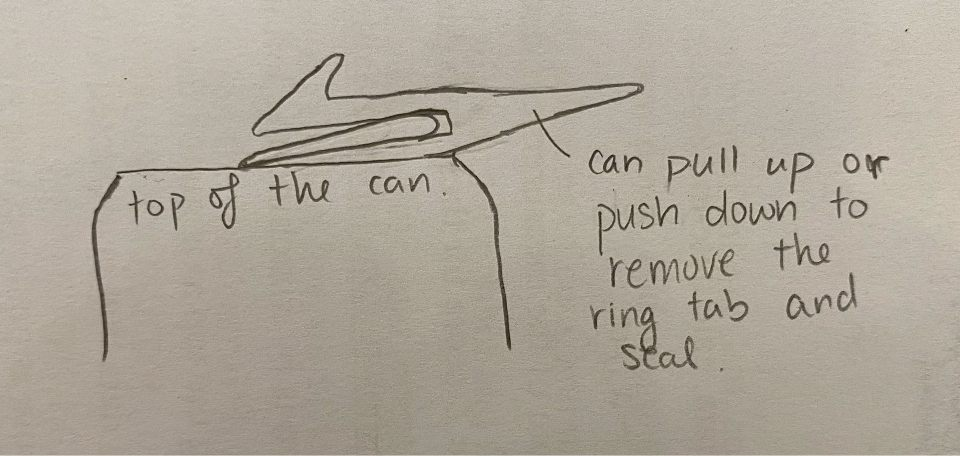 top of the can.
can pull up or
push down to
remove the
ring tab and
seal.